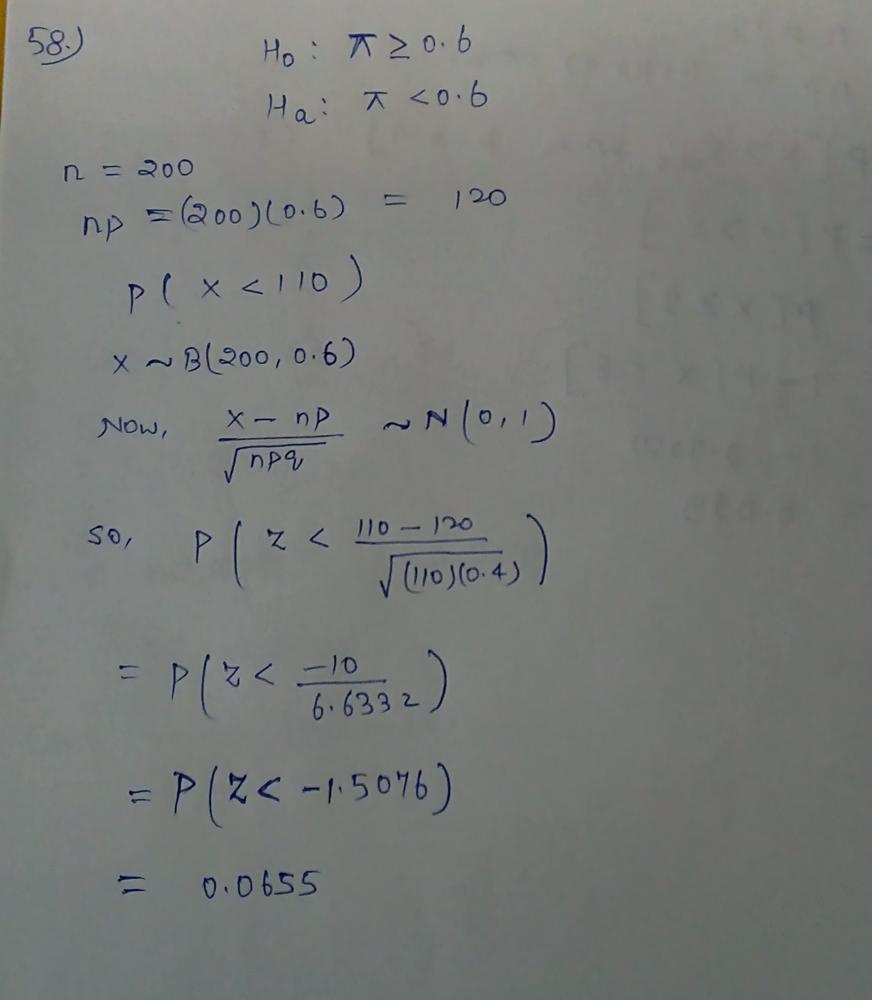 58.)
H₀ : π ≥ 0.6
Hₐ : π < 0.6
n = 200
np = (200)(0.6) = 120
P( x < 110 )
x ~ B(200, 0.6)
Now, (x - np)/√(npq) ~ N(0, 1)
So, P( z < (110 - 120)/√((110)(0.4)) )
= P( z < -10/6.6332 )
= P( z < -1.5076)
= 0.0655